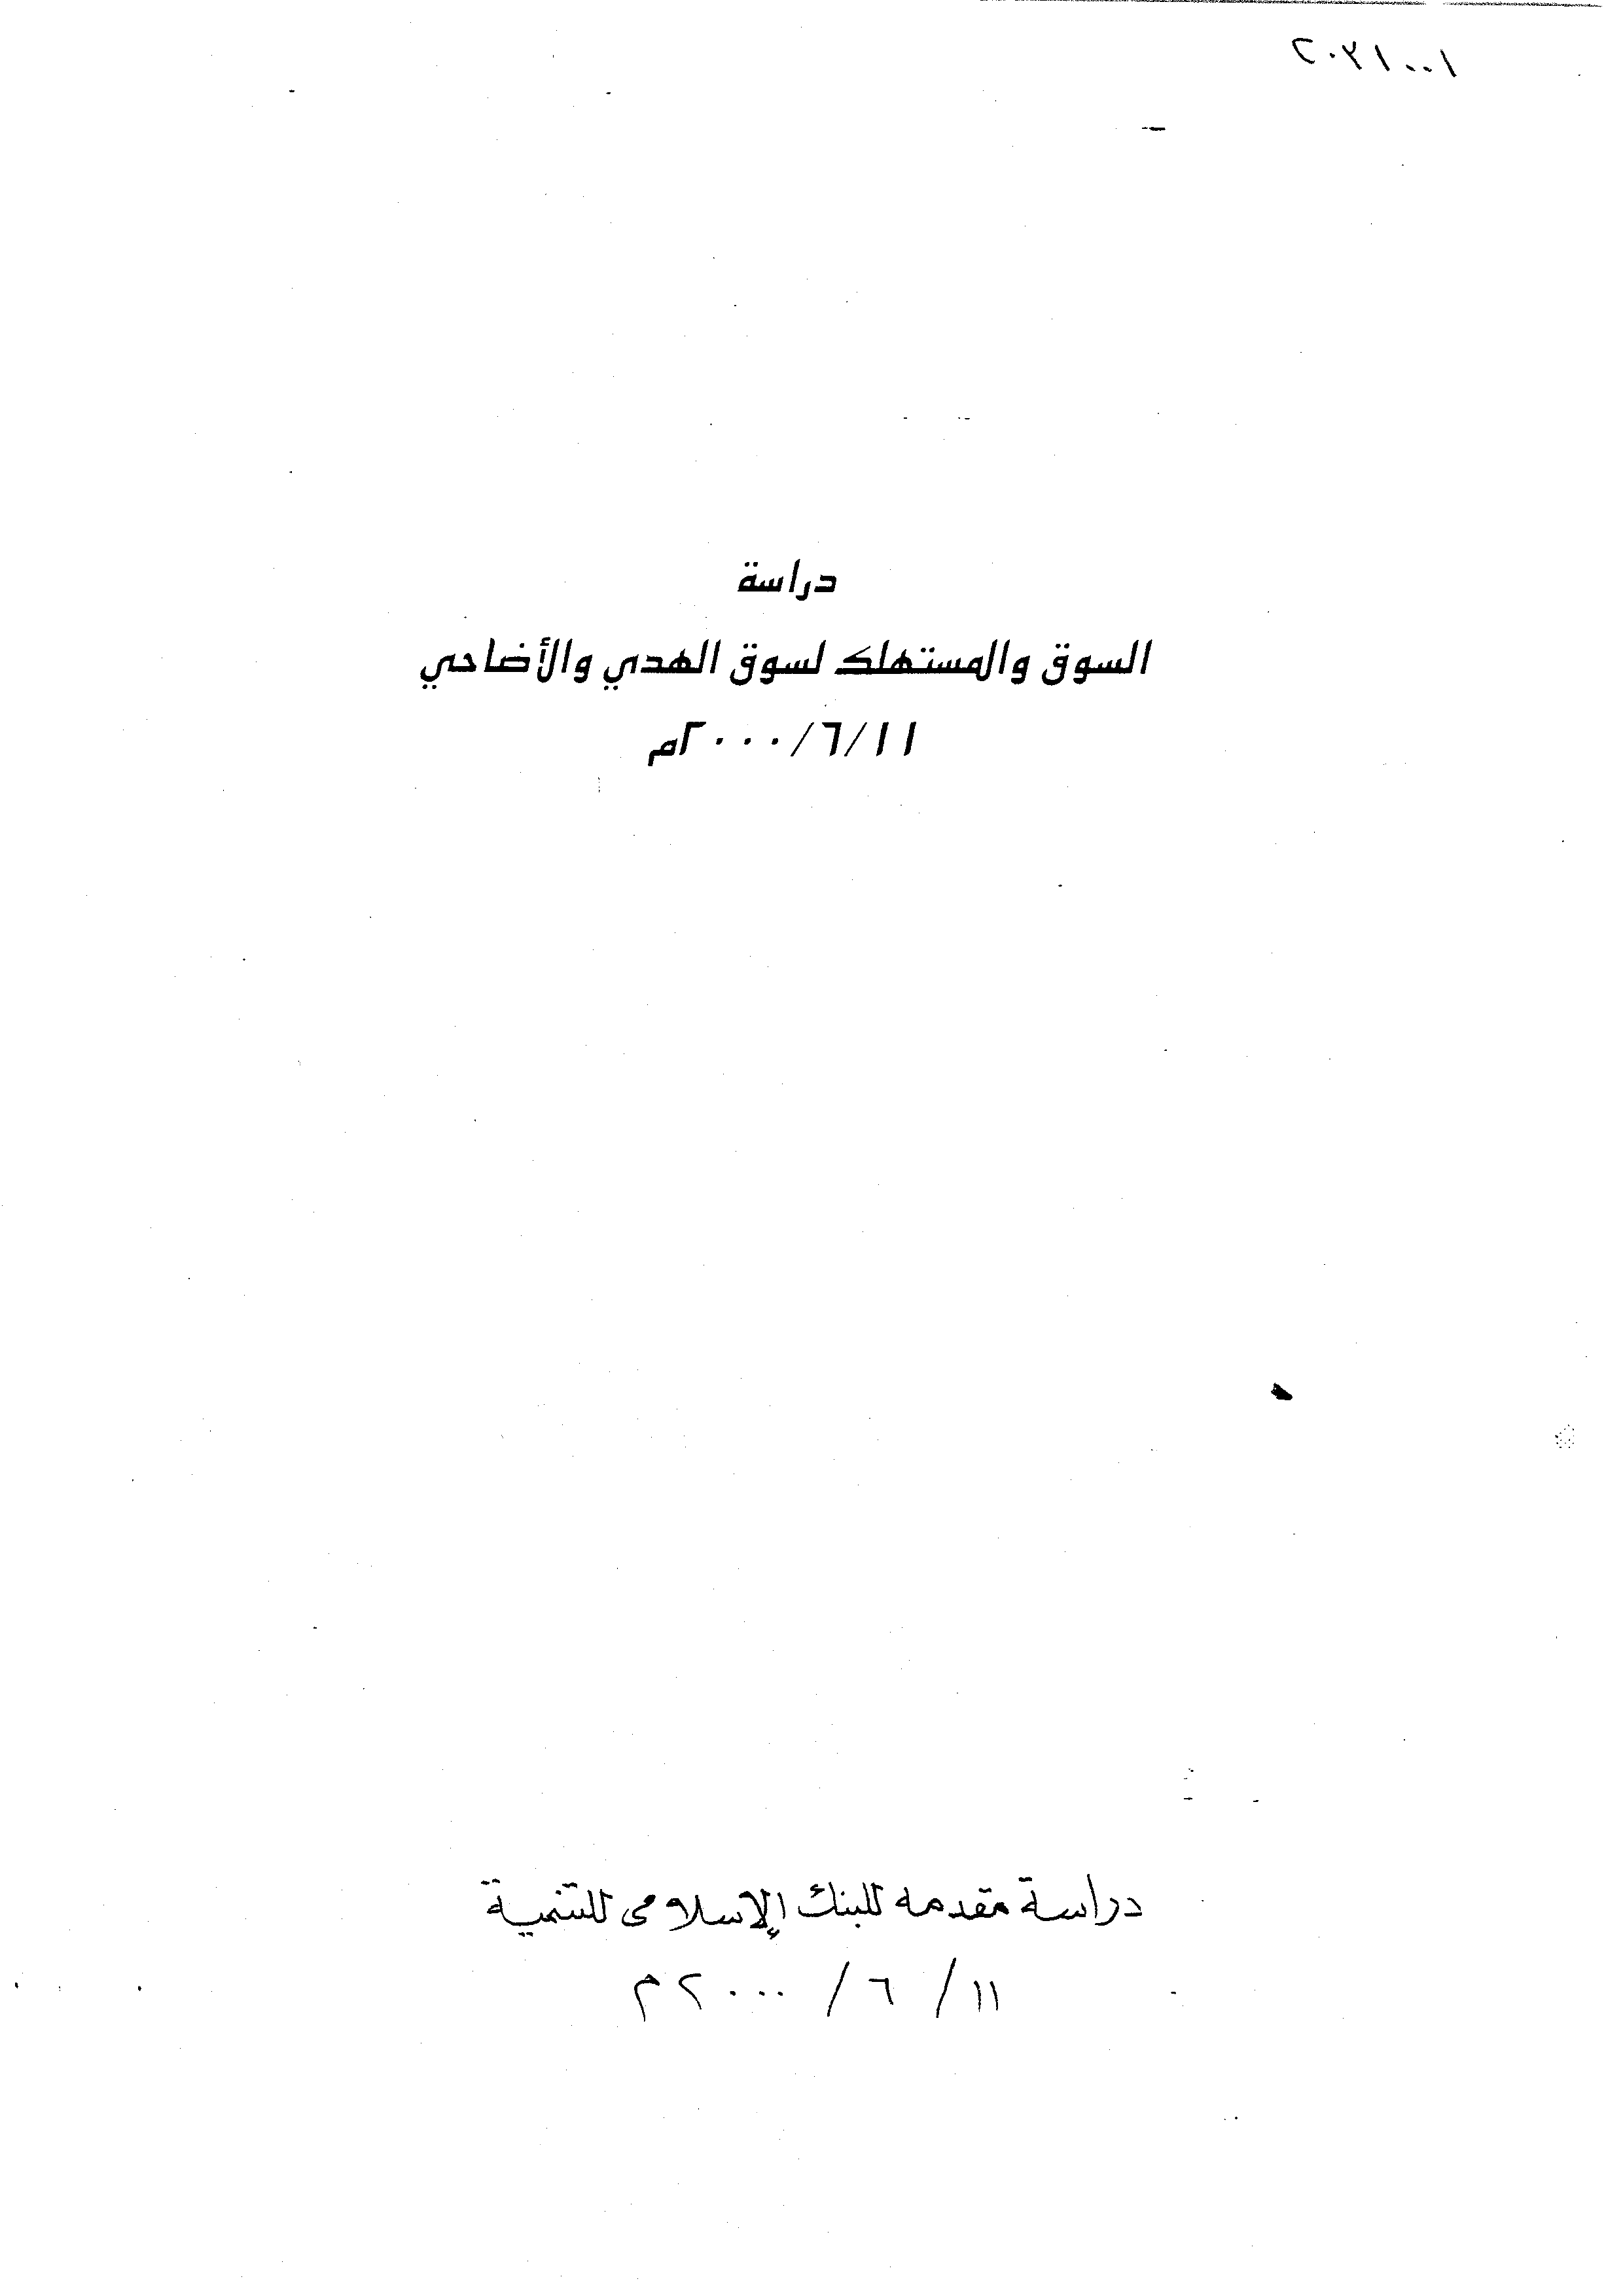 ٢٠٢١٠٠١
دراسة
السوق والمستهلك لسوق الهدي والأضاحي
٢٠٠٠/٦/١١م
دراسة مقدمه للبنك الإسلامى للتنمية
١١ / ٦ / ٢٠٠٠ م